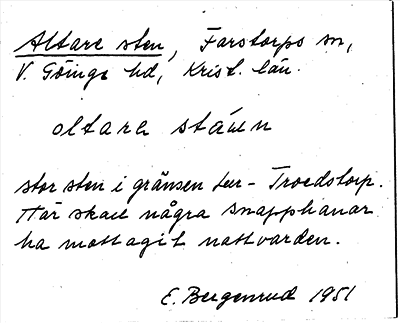 Altare sten, Farstorps sn,
V. Göinge hd, Krist. län.
oltara stäin
stor sten i gränsen ter - Troedstorp.
Här skall några snapphanar
ha mottagit nattvarden.
E. Bergenrud 1951